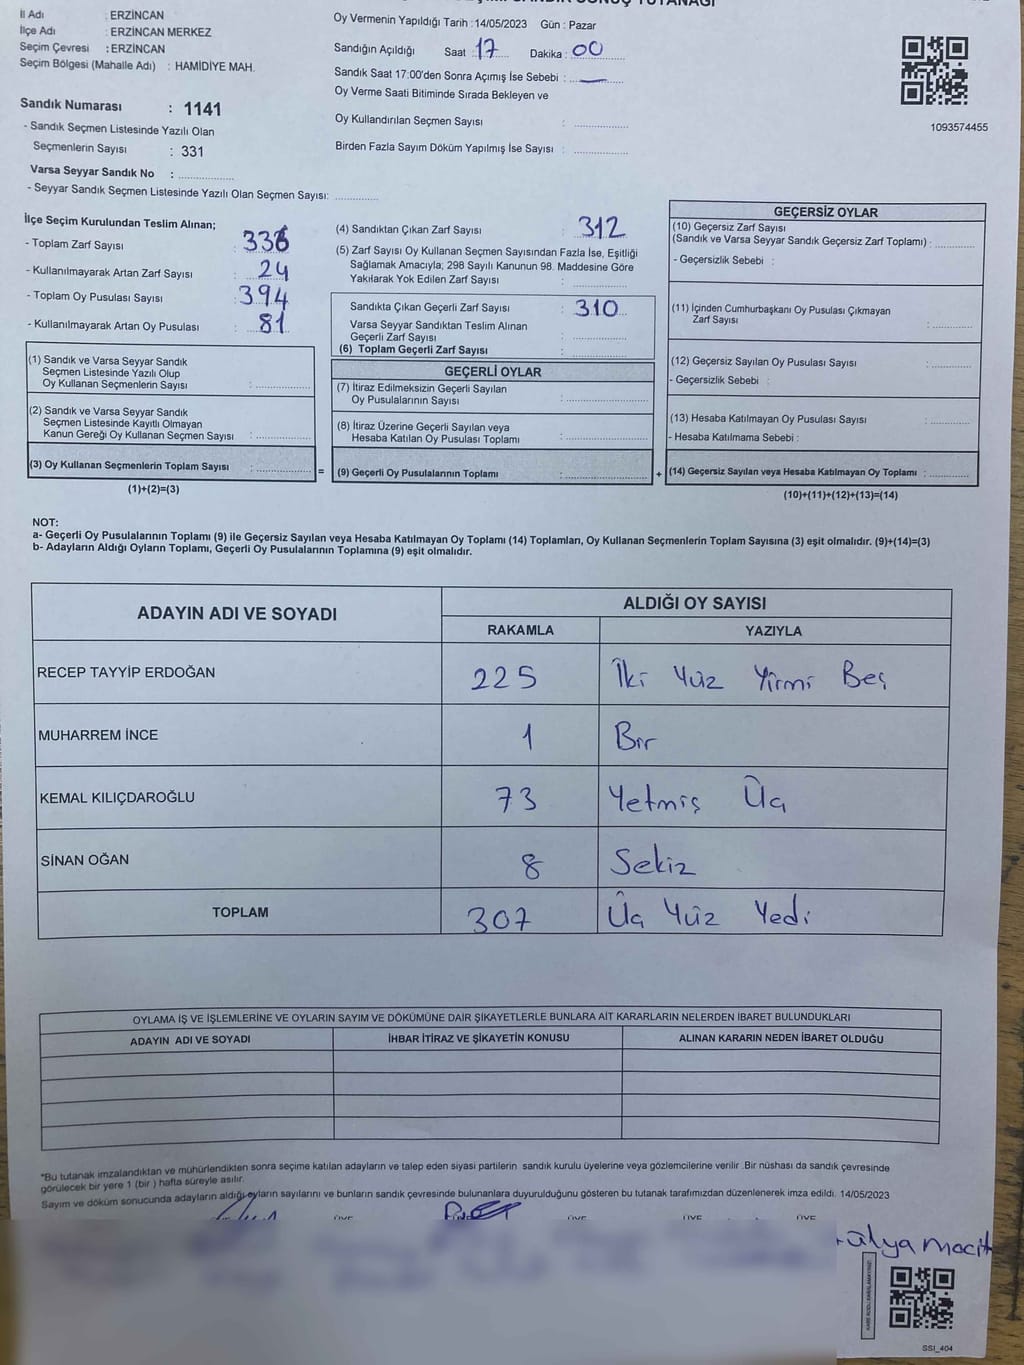 İl Adı : ERZİNCAN
İlçe Adı : ERZİNCAN MERKEZ
Seçim Çevresi : ERZİNCAN
Seçim Bölgesi (Mahalle Adı) : HAMİDİYE MAH.
Sandık Numarası : 1141
- Sandık Seçmen Listesinde Yazılı Olan
Seçmenlerin Sayısı : 331
Varsa Seyyar Sandık No :
- Seyyar Sandık Seçmen Listesinde Yazılı Olan Seçmen Sayısı:
Oy Vermenin Yapıldığı Tarih : 14/05/2023 Gün : Pazar
Sandığın Açıldığı Saat : 17 Dakika : 00
Sandık Saat 17:00'den Sonra Açımış İse Sebebi : —
Oy Verme Saati Bitiminde Sırada Bekleyen ve
Oy Kullandırılan Seçmen Sayısı :
Birden Fazla Sayım Döküm Yapılmış İse Sayısı :
1093574455
İlçe Seçim Kurulundan Teslim Alınan;
- Toplam Zarf Sayısı : 336
- Kullanılmayarak Artan Zarf Sayısı : 24
- Toplam Oy Pusulası Sayısı : 394
- Kullanılmayarak Artan Oy Pusulası : 81
(1) Sandık ve Varsa Seyyar Sandık
Seçmen Listesinde Yazılı Olup
Oy Kullanan Seçmenlerin Sayısı :
(2) Sandık ve Varsa Seyyar Sandık
Seçmen Listesinde Kayıtlı Olmayan
Kanun Gereği Oy Kullanan Seçmen Sayısı :
(3) Oy Kullanan Seçmenlerin Toplam Sayısı :
(1)+(2)=(3)
(4) Sandıktan Çıkan Zarf Sayısı : 312
(5) Zarf Sayısı Oy Kullanan Seçmen Sayısından Fazla İse, Eşitliği
Sağlamak Amacıyla; 298 Sayılı Kanunun 98. Maddesine Göre
Yakılarak Yok Edilen Zarf Sayısı :
Sandıkta Çıkan Geçerli Zarf Sayısı : 310
Varsa Seyyar Sandıktan Teslim Alınan
Geçerli Zarf Sayısı :
(6) Toplam Geçerli Zarf Sayısı :
GEÇERLİ OYLAR
(7) İtiraz Edilmeksizin Geçerli Sayılan
Oy Pusulalarının Sayısı :
(8) İtiraz Üzerine Geçerli Sayılan veya
Hesaba Katılan Oy Pusulası Toplamı :
= (9) Geçerli Oy Pusulalarının Toplamı :
GEÇERSİZ OYLAR
(10) Geçersiz Zarf Sayısı
(Sandık ve Varsa Seyyar Sandık Geçersiz Zarf Toplamı) :
- Geçersizlik Sebebi :
(11) İçinden Cumhurbaşkanı Oy Pusulası Çıkmayan
Zarf Sayısı :
(12) Geçersiz Sayılan Oy Pusulası Sayısı :
- Geçersizlik Sebebi :
(13) Hesaba Katılmayan Oy Pusulası Sayısı :
- Hesaba Katılmama Sebebi :
+ (14) Geçersiz Sayılan veya Hesaba Katılmayan Oy Toplamı :
(10)+(11)+(12)+(13)=(14)
NOT:
a- Geçerli Oy Pusulalarının Toplamı (9) ile Geçersiz Sayılan veya Hesaba Katılmayan Oy Toplamı (14) Toplamları, Oy Kullanan Seçmenlerin Toplam Sayısına (3) eşit olmalıdır. (9)+(14)=(3)
b- Adayların Aldığı Oyların Toplamı, Geçerli Oy Pusulalarının Toplamına (9) eşit olmalıdır.
ADAYIN ADI VE SOYADI ALDIĞI OY SAYISI
RAKAMLA YAZIYLA
RECEP TAYYİP ERDOĞAN 225 İki Yüz Yirmi Beş
MUHARREM İNCE 1 Bir
KEMAL KILIÇDAROĞLU 73 Yetmiş Üç
SİNAN OĞAN 8 Sekiz
TOPLAM 307 Üç Yüz Yedi
OYLAMA İŞ VE İŞLEMLERİNE VE OYLARIN SAYIM VE DÖKÜMÜNE DAİR ŞİKAYETLERLE BUNLARA AİT KARARLARIN NELERDEN İBARET BULUNDUKLARI
ADAYIN ADI VE SOYADI İHBAR İTİRAZ VE ŞİKAYETİN KONUSU ALINAN KARARIN NEDEN İBARET OLDUĞU
*Bu tutanak imzalandıktan ve mühürlendikten sonra seçime katılan adayların ve talep eden siyasi partilerin sandık kurulu üyelerine veya gözlemcilerine verilir .Bir nüshası da sandık çevresinde
görülecek bir yere 1 (bir ) hafta süreyle asılır.
Sayım ve döküm sonucunda adayların aldığı oyların sayılarını ve bunların sandık çevresinde bulunanlara duyurulduğunu gösteren bu tutanak tarafımızdan düzenlenerek imza edildi. 14/05/2023
ÜYE ÜYE ÜYE ÜYE
Macit
SSI_404